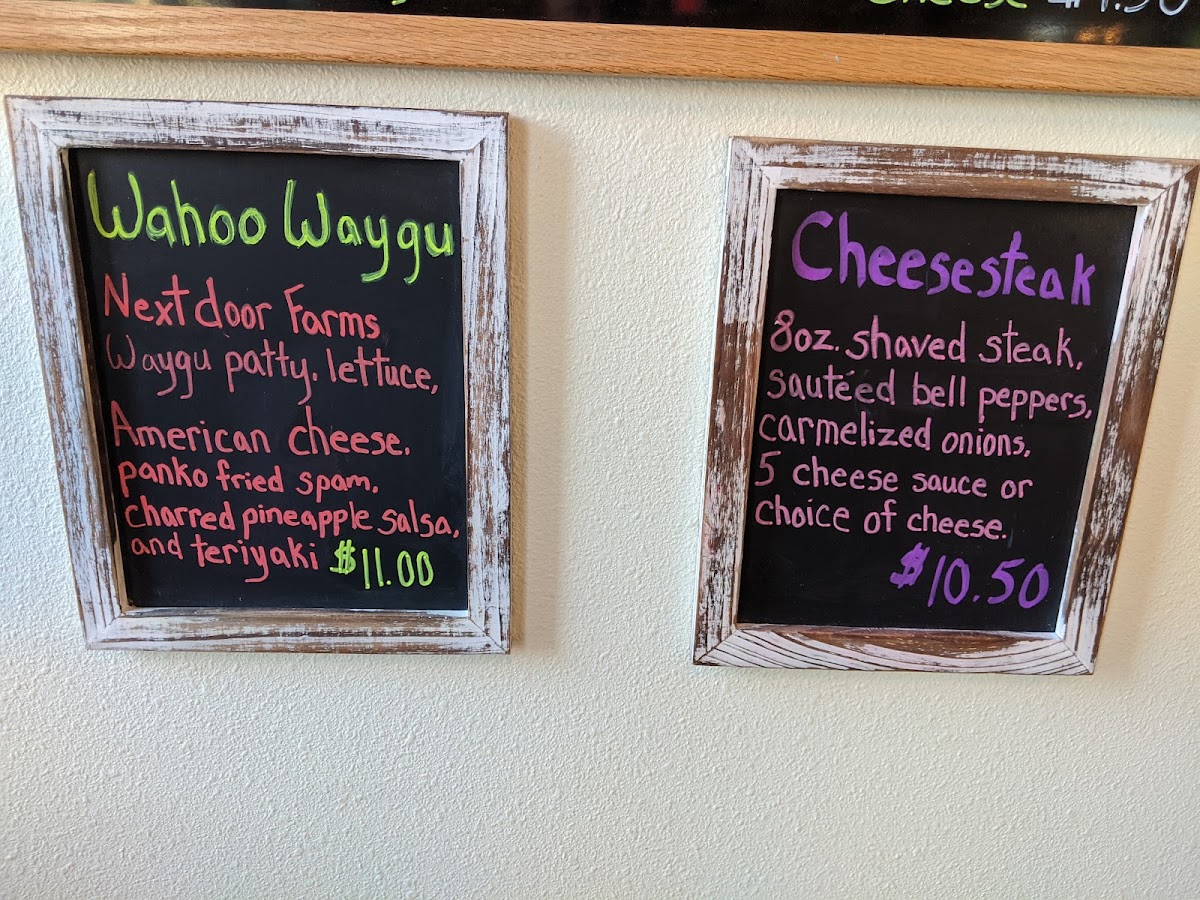 Cheese
Wahoo Waygu
Next door Farms
Waygu patty, lettuce,
American cheese,
panko fried spam,
charred pineapple salsa,
and teriyaki $11.00
Cheesesteak
8oz. shaved steak,
sautéed bell peppers,
carmelized onions,
5 cheese sauce or
choice of cheese.
$10.50